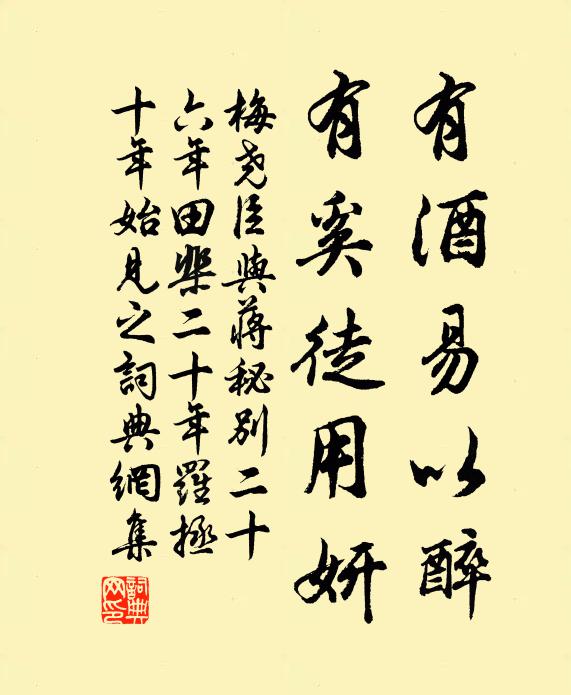 有酒易以醉
有奚徒用妍
梅尧臣與蔣秘別二十
六年田棐二十年羅拯
十年始見之詞典網集
詞典
网印